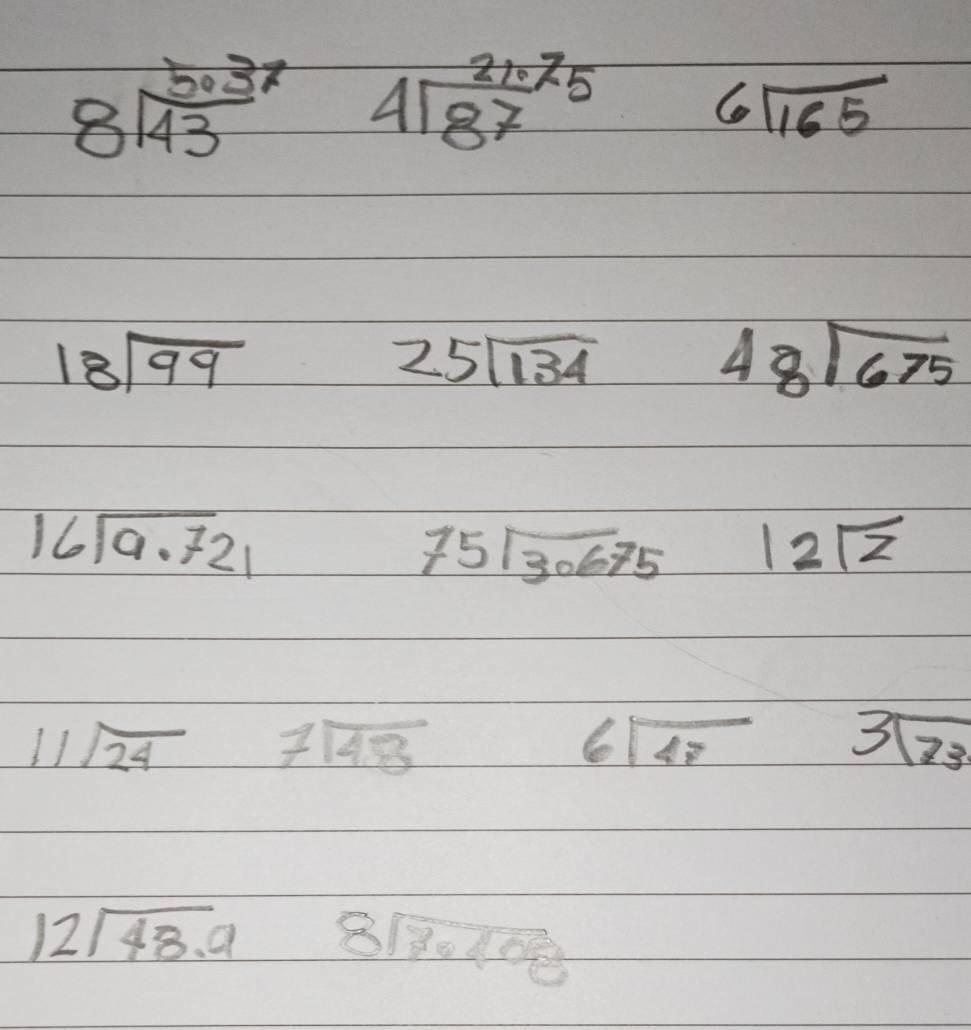 5.37 21.75
8)43 4)87 6)165
18)99 25)134 48)675
16)9.721 75)3.675 12)2
11)24 7)48 6)47 3)73
12)48.9 8)7.408